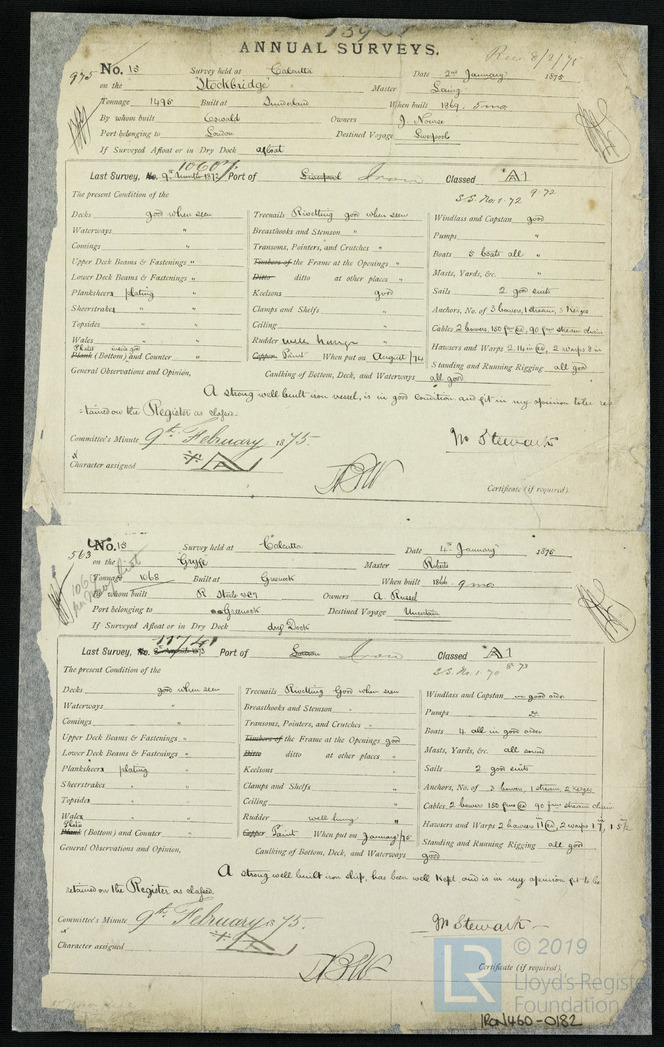 ANNUAL SURVEYS.
Rec 8/2/75
975 No. 13 Survey held at Calcutta Date 2nd January 1875
on the Stockbridge Master Laing
Tonnage 1495 Built at Sunderland When built 1869. 5mo
By whom built Oswald Owners J. Nourse
Port belonging to London Destined Voyage Liverpool
If Surveyed Afloat or in Dry Dock afloat
10607
Last Survey, No. Port of Liverpool Iron Classed A1
S.S. No. 1. 72 9.72
The present Condition of the
Decks good when seen
Waterways "
Comings "
Upper Deck Beams & Fastenings "
Lower Deck Beams & Fastenings "
Planksheers plating "
Sheerstrakes "
Topsides "
Wales "
Plank (Bottom) and Counter "
Treenails Rivetting good when seen
Breasthooks and Stemson "
Transoms, Pointers, and Crutches "
Timbers of the Frame at the Openings "
Ditto ditto at other places "
Keelsons good
Clamps and Shelfs "
Ceiling "
Rudder well hung
Copper Paint When put on August /74
Windlass and Capstan good
Pumps "
Boats 5 boats all "
Masts, Yards, &c. "
Sails 2 good suits
Anchors, No. of 3 bowers, 1 stream, 3 Kedges
Cables 2 bowers, 150 fms ea, 90 fms stream chain
Hawsers and Warps 2 14 in ea, 2 warps 8 in
Standing and Running Rigging all good
General Observations and Opinion, Caulking of Bottom, Deck, and Waterways all good
A strong well built iron vessel, is in good condition and fit in my opinion to be re
-tained on the Register as classed.
Committee's Minute 9th February 1875.
M Stewart
Character assigned A
Certificate (if required)
563 No. 13 Survey held at Calcutta Date 4th January 1875
on the Gryfe Master Roberts
Tonnage 1068 Built at Greenock When built 1866. 9mo
By whom built R Steele & Co Owners A. Russel
Port belonging to Greenock Destined Voyage Uncertain
If Surveyed Afloat or in Dry Dock dry Dock
Last Survey, No. Port of London Iron Classed A1
S.S. No. 1. 70 8.73
The present Condition of the
Decks good when seen
Waterways "
Comings "
Upper Deck Beams & Fastenings "
Lower Deck Beams & Fastenings "
Planksheers plating "
Sheerstrakes "
Topsides "
Wales "
Plates
Plank (Bottom) and Counter "
Treenails Rivetting Good when seen
Breasthooks and Stemson "
Transoms, Pointers, and Crutches "
Timbers of the Frame at the Openings good
Ditto ditto at other places "
Keelsons "
Clamps and Shelfs "
Ceiling "
Rudder well hung "
Copper Paint When put on January /75
Windlass and Capstan in good order
Pumps Do
Boats 4 all in good order
Masts, Yards, &c. all sound
Sails 2 good suits
Anchors, No. of 3 bowers, 1 stream, 2 Kedges
Cables 2 bowers 150 fms ea 90 fms stream chain
Hawsers and Warps 2 hawsers 11 ea, 2 warps 1 7, 1 5½
Standing and Running Rigging all good
General Observations and Opinion, Caulking of Bottom, Deck, and Waterways good
A strong well built iron ship, has been well kept and is in my opinion fit to be
retained on the Register as classed.
Committee's Minute 9th February 1875.
M Stewart
Character assigned A
Certificate (if required)
LR © 2019
Lloyd's Register
Foundation
IRON460-0182